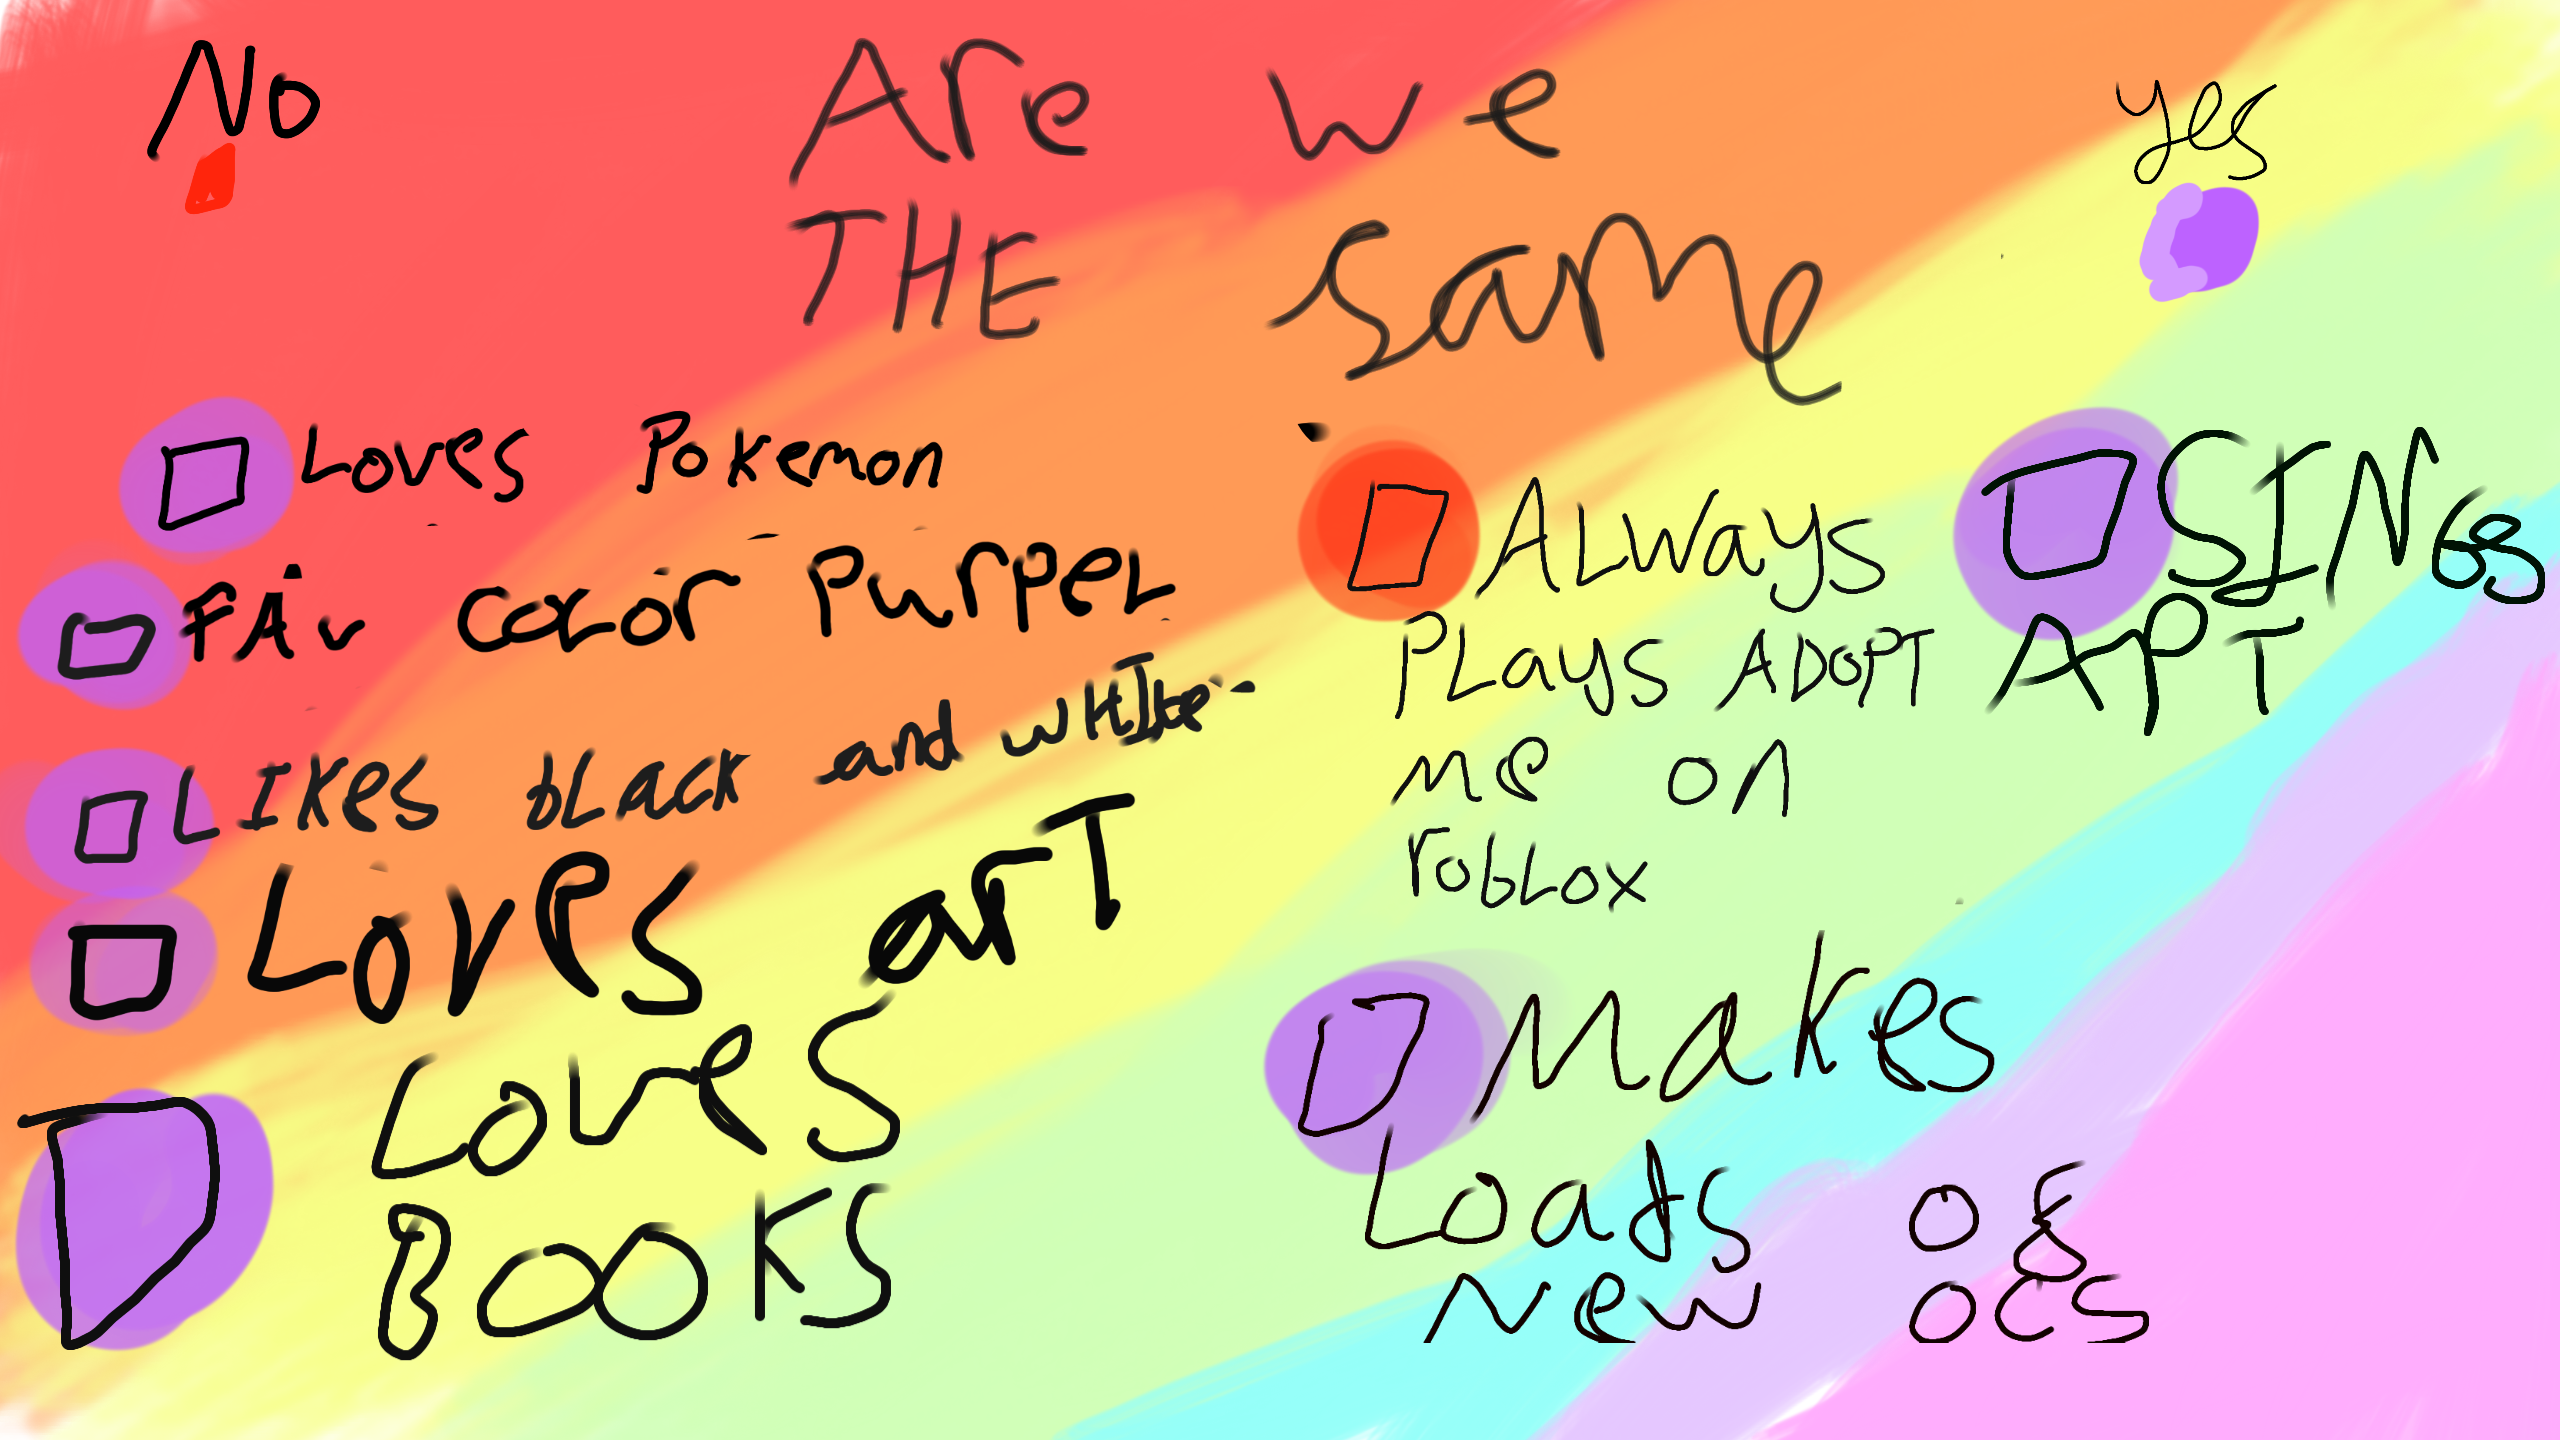 No
Are we
THE same
yes
Loves Pokemon
FAv coLor PurpeL
LIKes bLack and wHIte
Loves arT
Loves
BOOKS
ALways
PLays ADOPT
me on
robLox
SINGs
APT
Makes
Loads of
New ocs